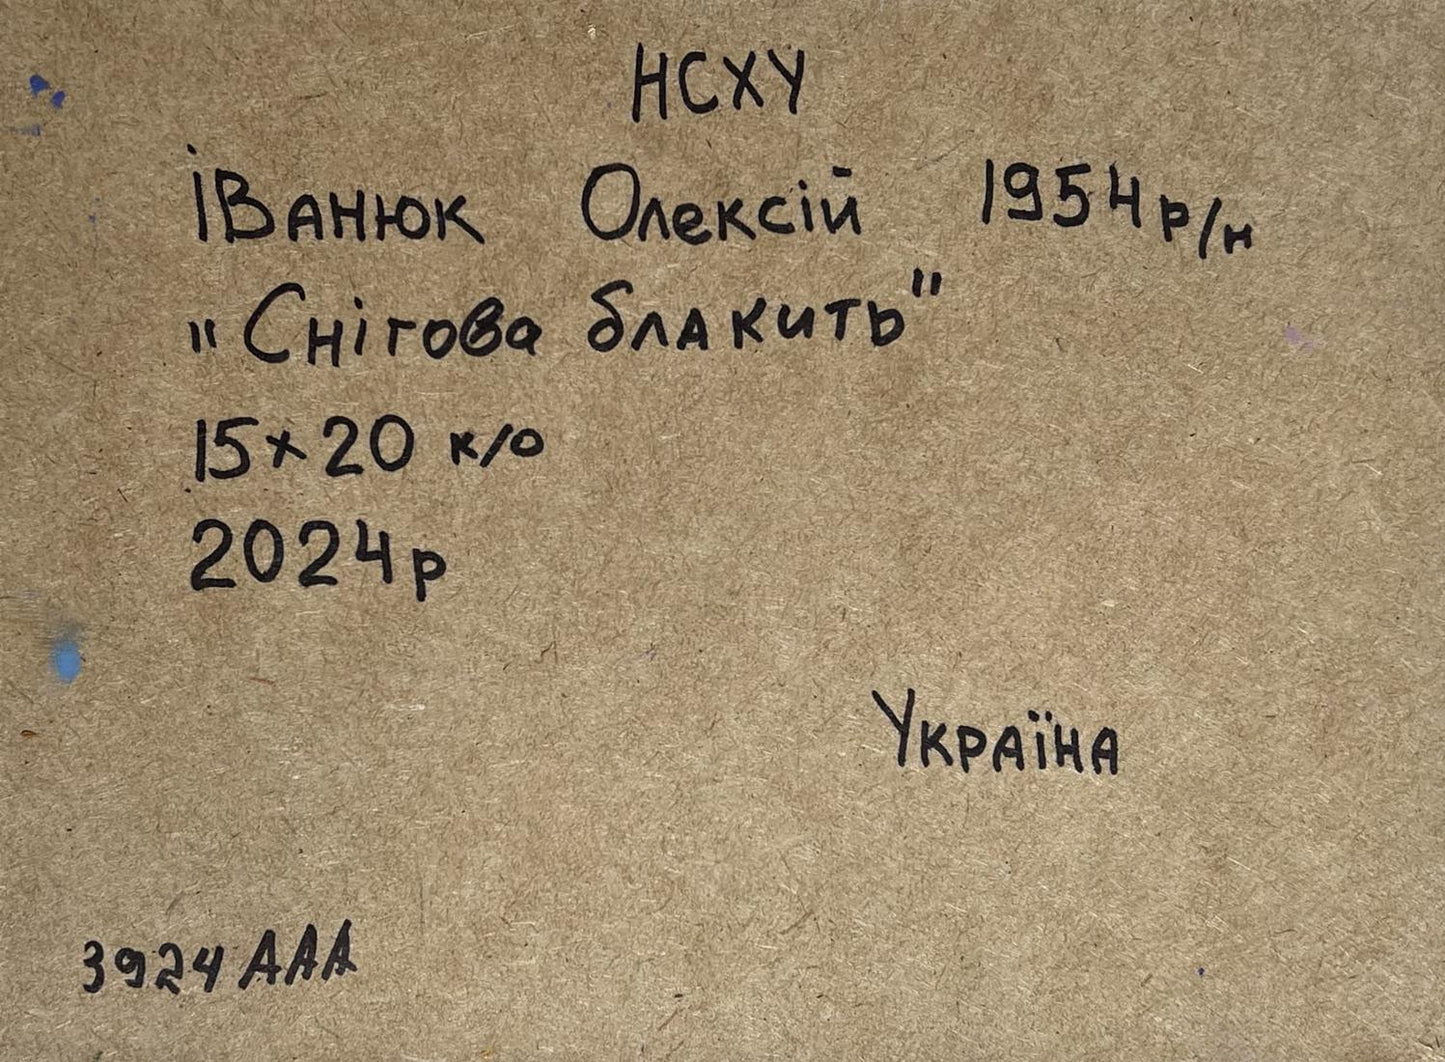 НСХУ
Іванюк Олексій 1954 р/н
"Снігова блакить"
15×20 к/о
2024р
Україна
3924 ААА